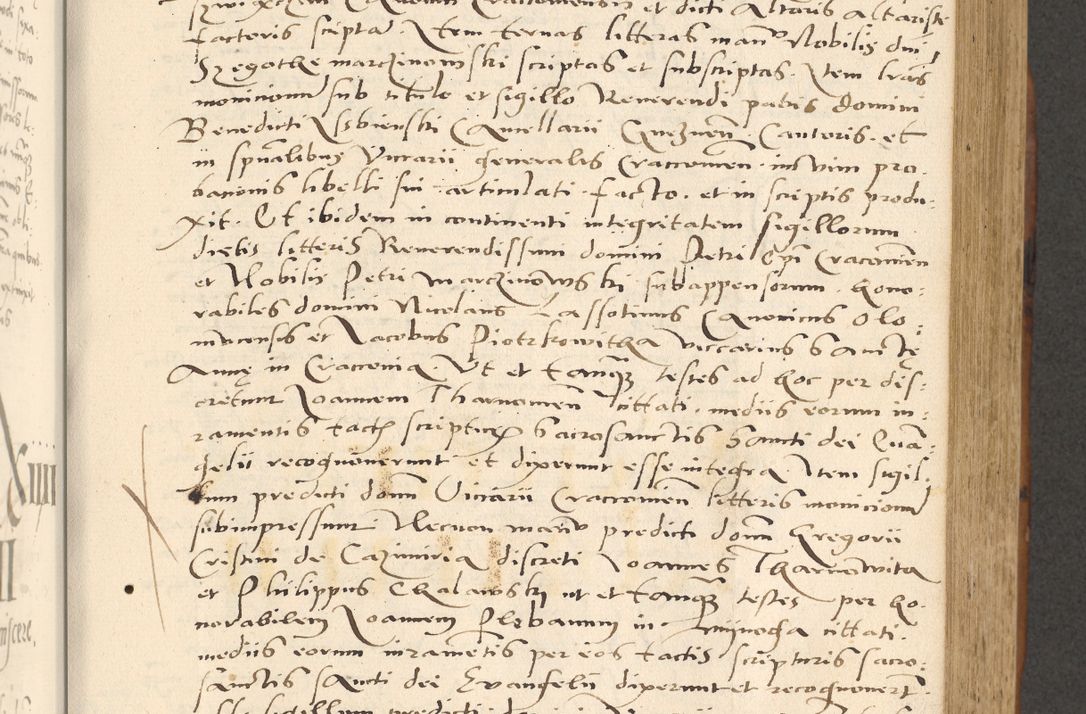 et dicti Altaris altariste
factoris scripta. Item ternas litteras manu Nobilis dni
Szegothe marczinowski scriptas et subscriptas. Item lras
monicionum sub titulo et sigillo Reverendi patris domini
Benedicti Issbienski Cancellarii Gneznen. Cantoris. et
in spualibus Vicarii generalis Cracovien. in vim pro-
bacionis libelli sui articulati. facto. et in scriptis produ-
xit. Et ibidem in continenti integritatem sigillorum
dictis litteris Reverendissimi domini Petri Epi Cracovien
et Nobilis Petri Marczinowski subappensorum. hono-
rabiles domini Nicolaus Lassotinus Canonicus Olo-
mucensis et Jacobus Piotrkowitha viccarius sancte
Anne in Craccovia. Ut et tanq testes ad hoc per dis-
cretum Joannem Tharnowien cittati. mediis eorum iu-
ramentis tactis scripturis sacrosanctis sancti dei Evan-
gelii recognoverunt et dixerunt esse integra. Item sigil-
lum predicti domi Vicarii Craccovien litteris monicionum
subimpressum Necnon manu predicti domi Gregorii
Cristini de Cazimiria discreti Joannes Tharnowita
et Philippus Chalawski ut et tanq testes per ho-
norabilem Joannem Plebanum in cittati.
mediis eorum iuramentis per eos tactis scripturis sacro-
sanctis sancti dei Evangelii dixerunt et recognovert.
sigillum predicti
XIIII
II